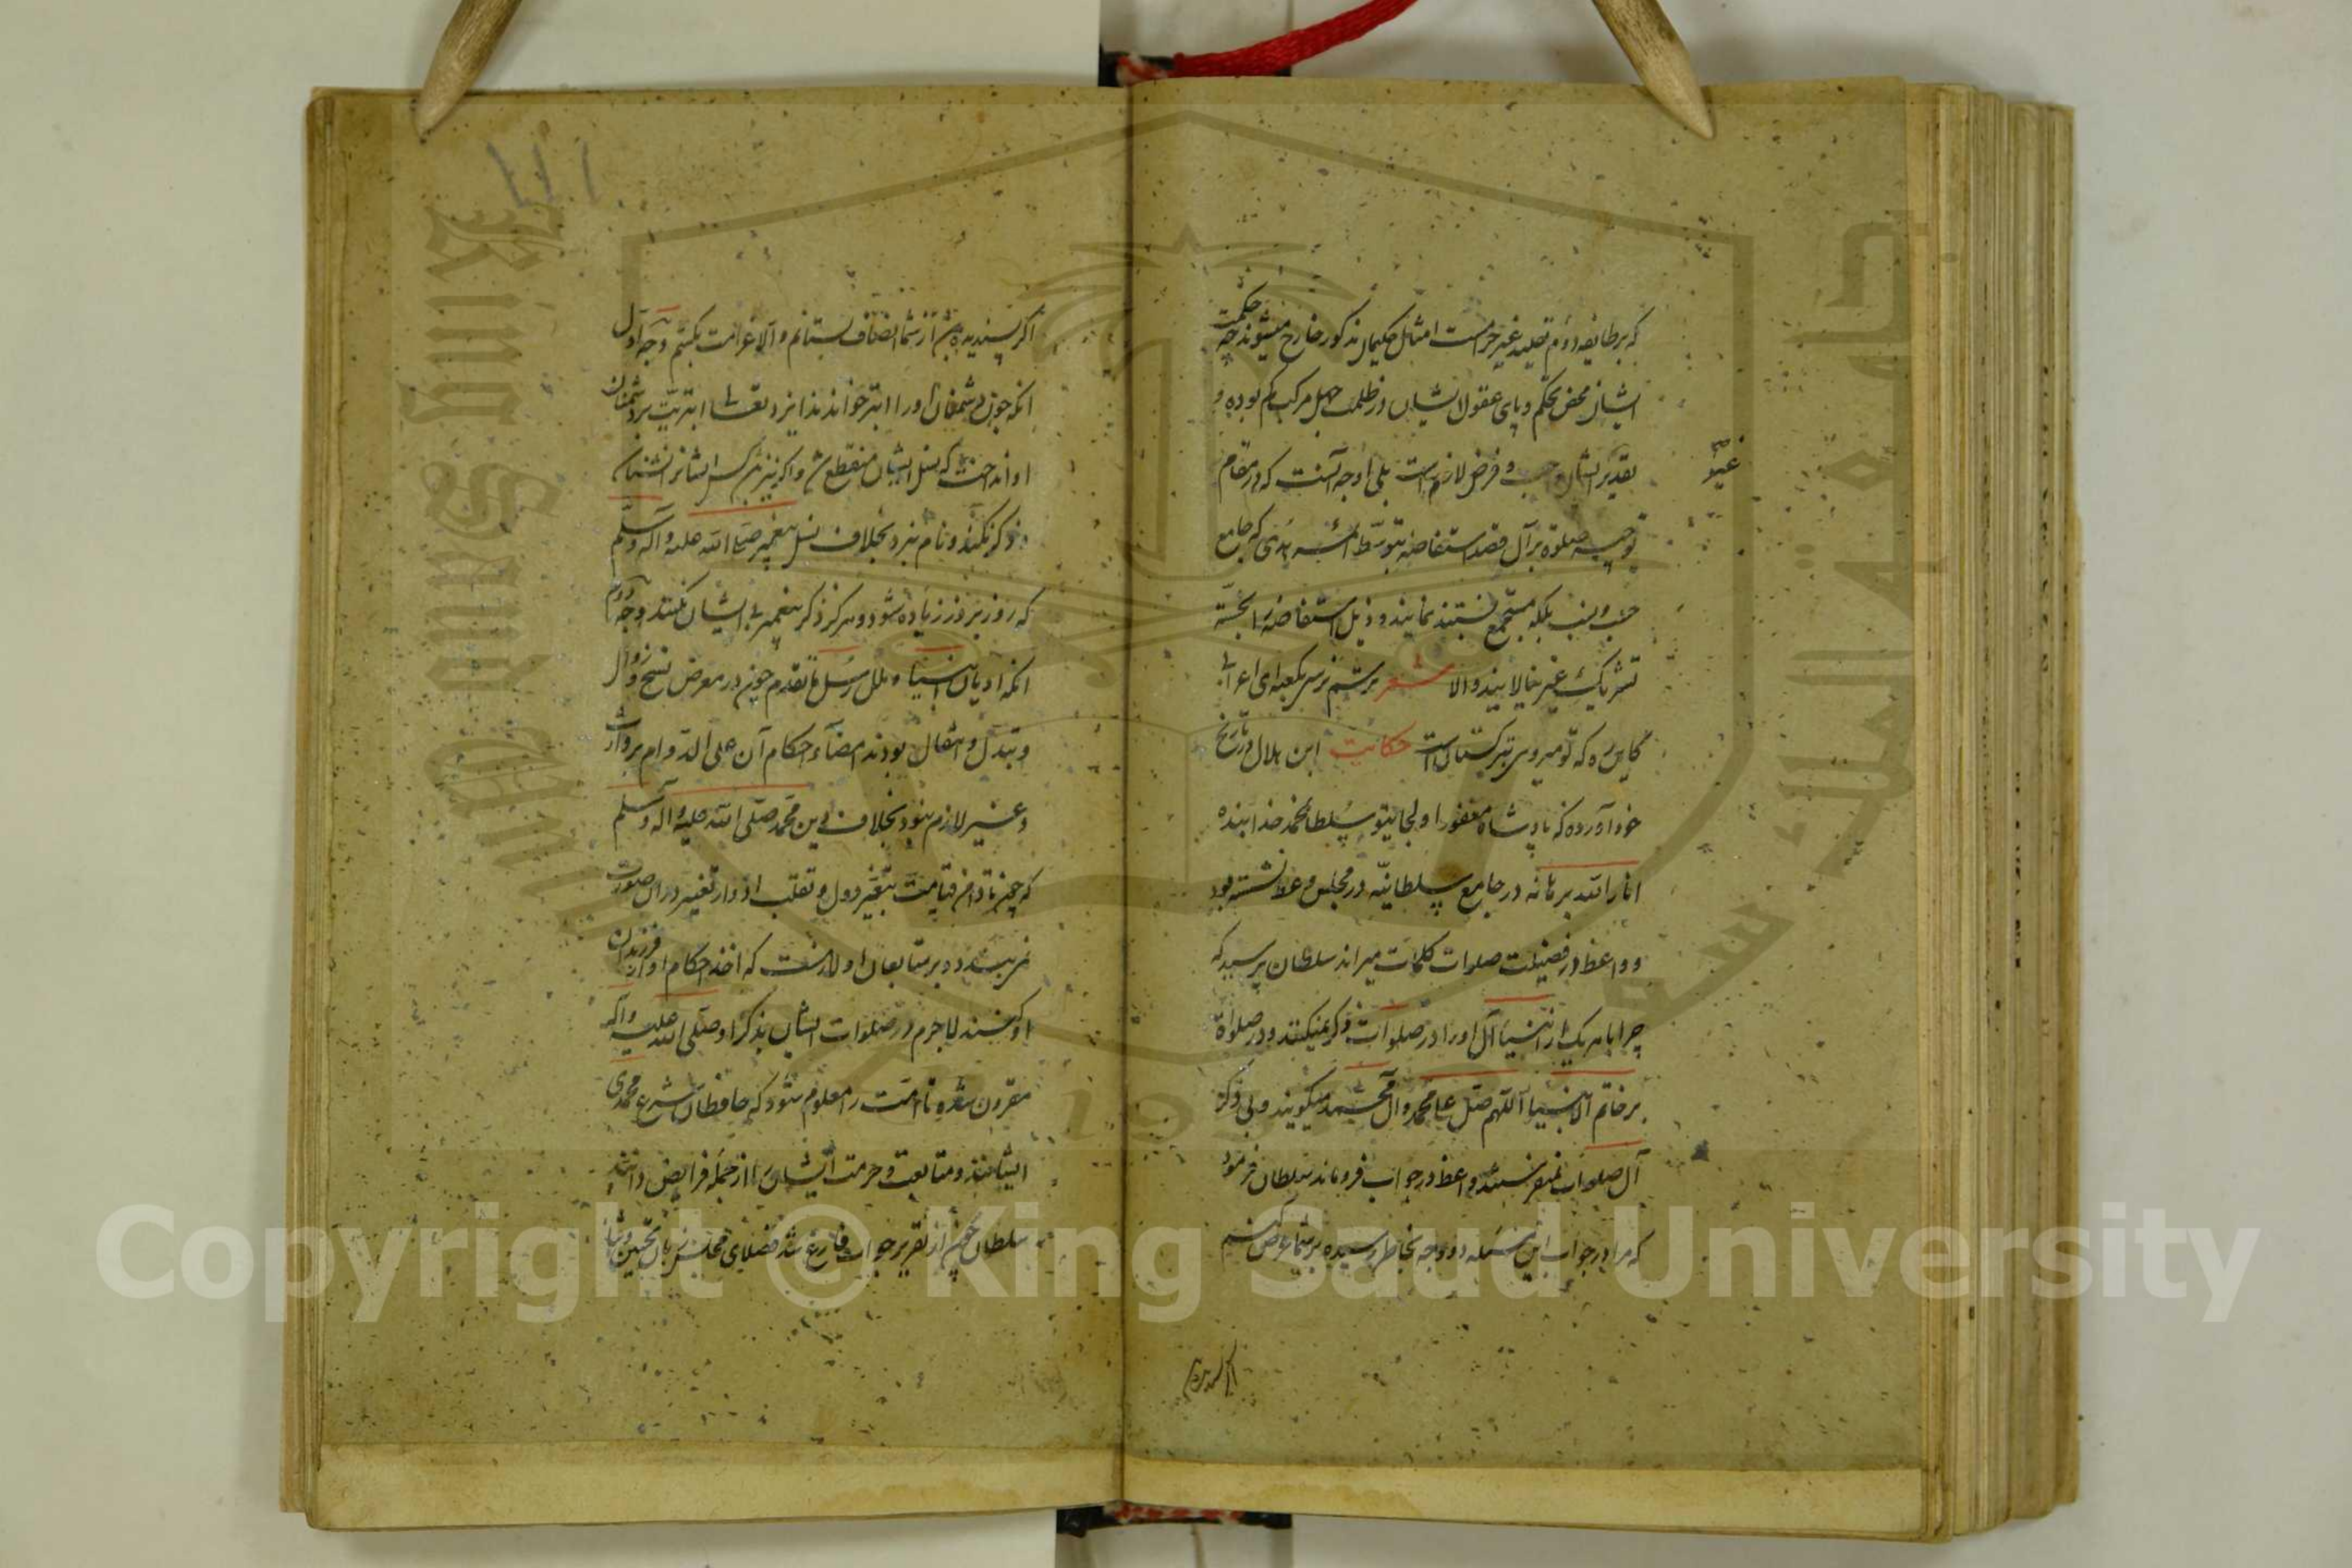 که بر طایفه دوم تقلید غیر حرامست امثال حکیمان مذکور خارج میشوند چه حکمت
ایشان محض تحکم و پای عقول ایشان در ظلمت جهل مرکب کم بوده و
تقدیر ایشان و فرض لازم است بلی اوجه آنست که در مقام
توجیه صلوة بر آل قصد استفاضه بتوسط ائمه هدی که جامع
نسبتند نمایند و ذیل استفاضه را بجسته
تشریک غیر نیالایند والا شعر ترسم نرسی بکعبه ای اعرابی
کاین ره که تو میروی بترکستان است حکایت ابن هلال در تاریخ
خود آورده که پادشاه مغفور اولجایتو سلطان محمد خدابنده
انار الله برهانه در جامع سلطانیه در مجلس وعظ نشسته بود
و واعظ در فضیلت صلوات کلمات میراند سلطان پرسید که
چرا با هر یک از انبیا آل او را در صلوات ذکر نمیکنند و در صلواة
بر خاتم الانبیا اللهم صل علی محمد وآل محمد میگویند و بی ذکر
آل صلوات واعظ در جواب فرو ماند سلطان فرمود
که مرا در جواب این مسئله دو وجه بخاطر رسیده بر شما عرض کنم
اگر پسندیده
اگر پسندیده باشد از شما انصاف بستانم و الا غرامت بکشم وجه اول
آنکه چون دشمنان او را ابتر خواندند ایزد تعالی ابتریت بر دشمنان
او انداخت که نسل ایشان منقطع شد و اگر نیز باشد کس ایشانرا نشناسد
و ذکر نکند و نام نبرد بخلاف نسل پیغمبر صلی الله علیه و آله وسلم
که روز بروز زیاده شود و هرگز ذکر پیغمبر بی ایشان نکنند وجه دوم
آنکه ادیان انبیا و ملل رسل ما تقدم چون در معرض نسخ و زوال
و تبدل و انتقال بودند امضاء احکام آن علی الدوام بر وارث
و غیر لازم نبود بخلاف دین محمد صلی الله علیه و آله وسلم
که چون تا دامن قیامت بتغیر دول و تقلب ادوار تغییر در آن صورت
نمی بندد و بر متابعان او لازمست که اخذ احکام او از فرزندان
او کنند لاجرم در صلوات ایشان بذکر او صلی الله علیه وآله
مقرون شده تا امت را معلوم شود که حافظان شرع محمدی
ایشانند و متابعت و حرمت ایشان را از جمله فرایض دانند
سلطان چون از تقریر جواب فارغ شد فضلای مجلس زبان تحسین و ثنا
Copyright © King Saud University